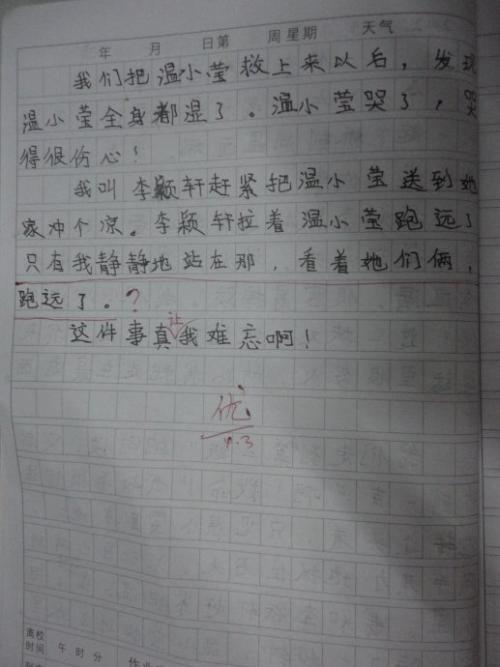 年 月 日第 周星期 天气
我们把温小莹救上来以后，发现
温小莹全身都湿了。温小莹哭了，哭
得很伤心！
我叫李颖轩赶紧把温小莹送到她
家冲个凉。李颖轩拉着温小莹跑远了
只有我静静地站在那，看着她们俩，
跑远了。?
让
这件事真我难忘啊！
优
9.3
离校
时间 午 时 分 作业